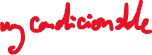 my condicionable